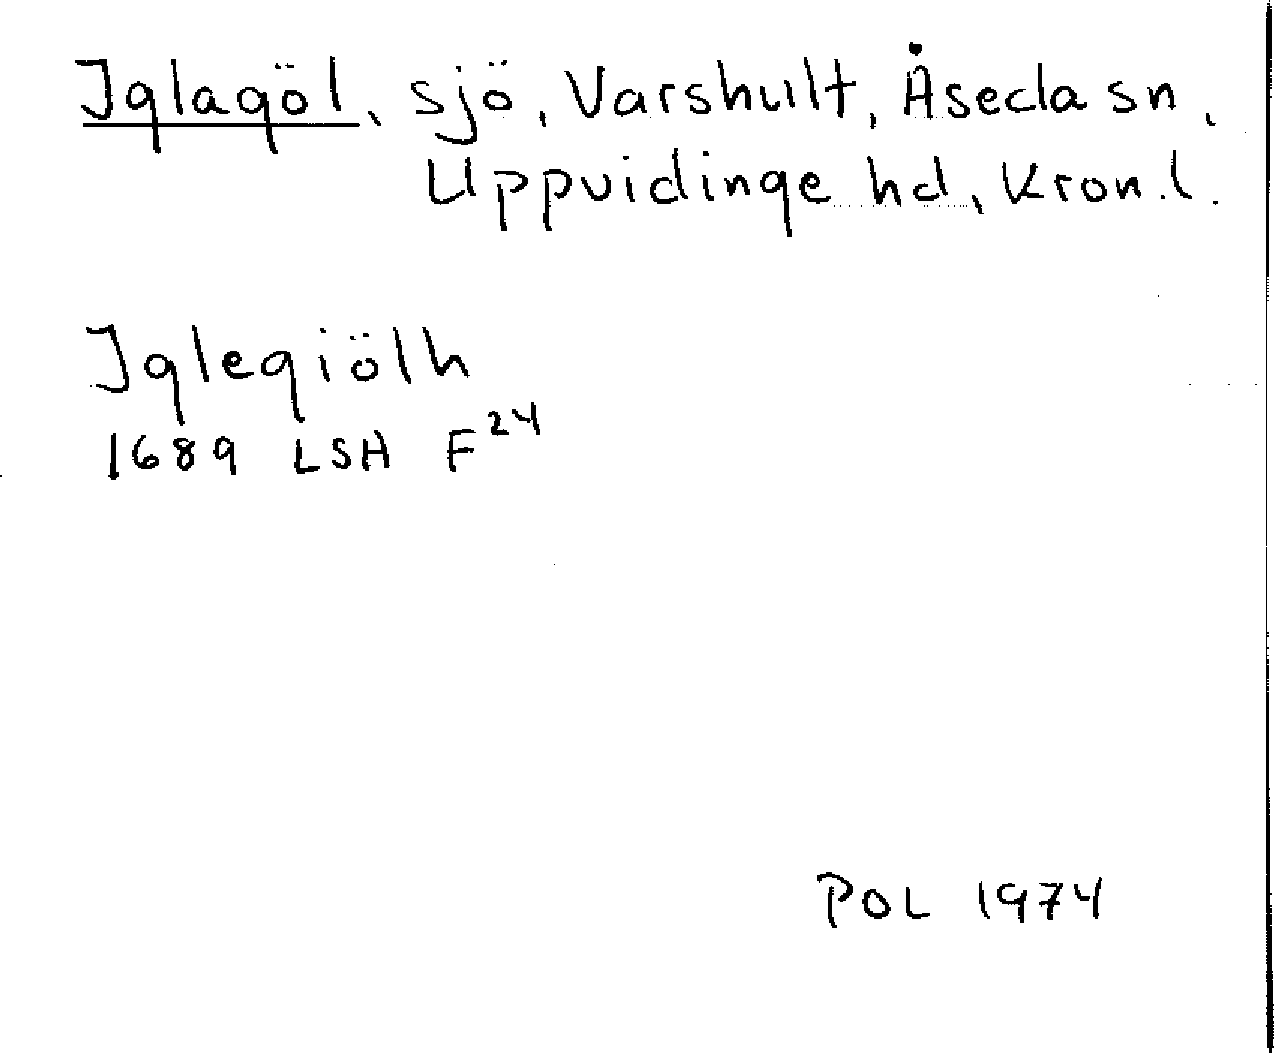 Iglagöl, sjö, Varshult, Åseda sn,
Uppvidinge hd, Kron.l.
Iglegiölh
1689 LSH F24
POL 1974